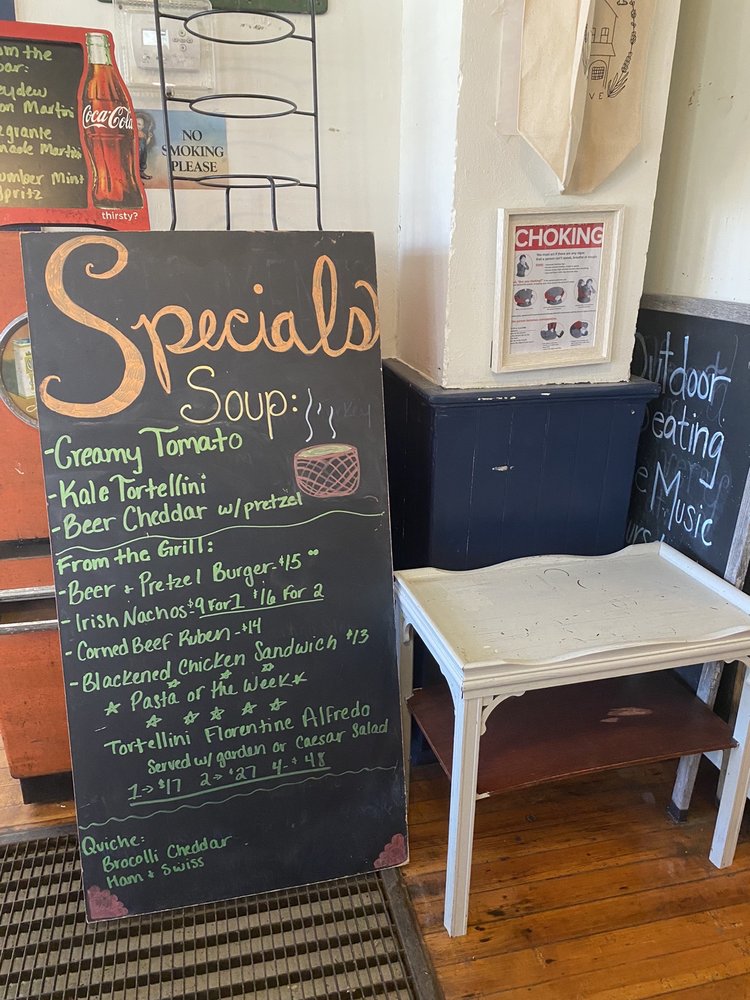 m the
bar:
eydew
on Martini
egrante
nade Martini
umber Mint
Spritz
Coca-Cola
thirsty?
NO
SMOKING
PLEASE
VE
CHOKING
Specials
Soup:
-Creamy Tomato
-Kale Tortellini
-Beer Cheddar w/pretzel
From the Grill:
-Beer + Pretzel Burger-$15
-Irish Nachos-$9 For 1 $16 For 2
-Corned Beef Ruben-$14
-Blackened Chicken Sandwich $13
Pasta of the Week
Tortellini Florentine Alfredo
Served w/ garden or Caesar Salad
1→$17 2→$27 4-$48
Quiche:
Brocolli Cheddar
Ham + Swiss
Outdoor
Seating
e Music